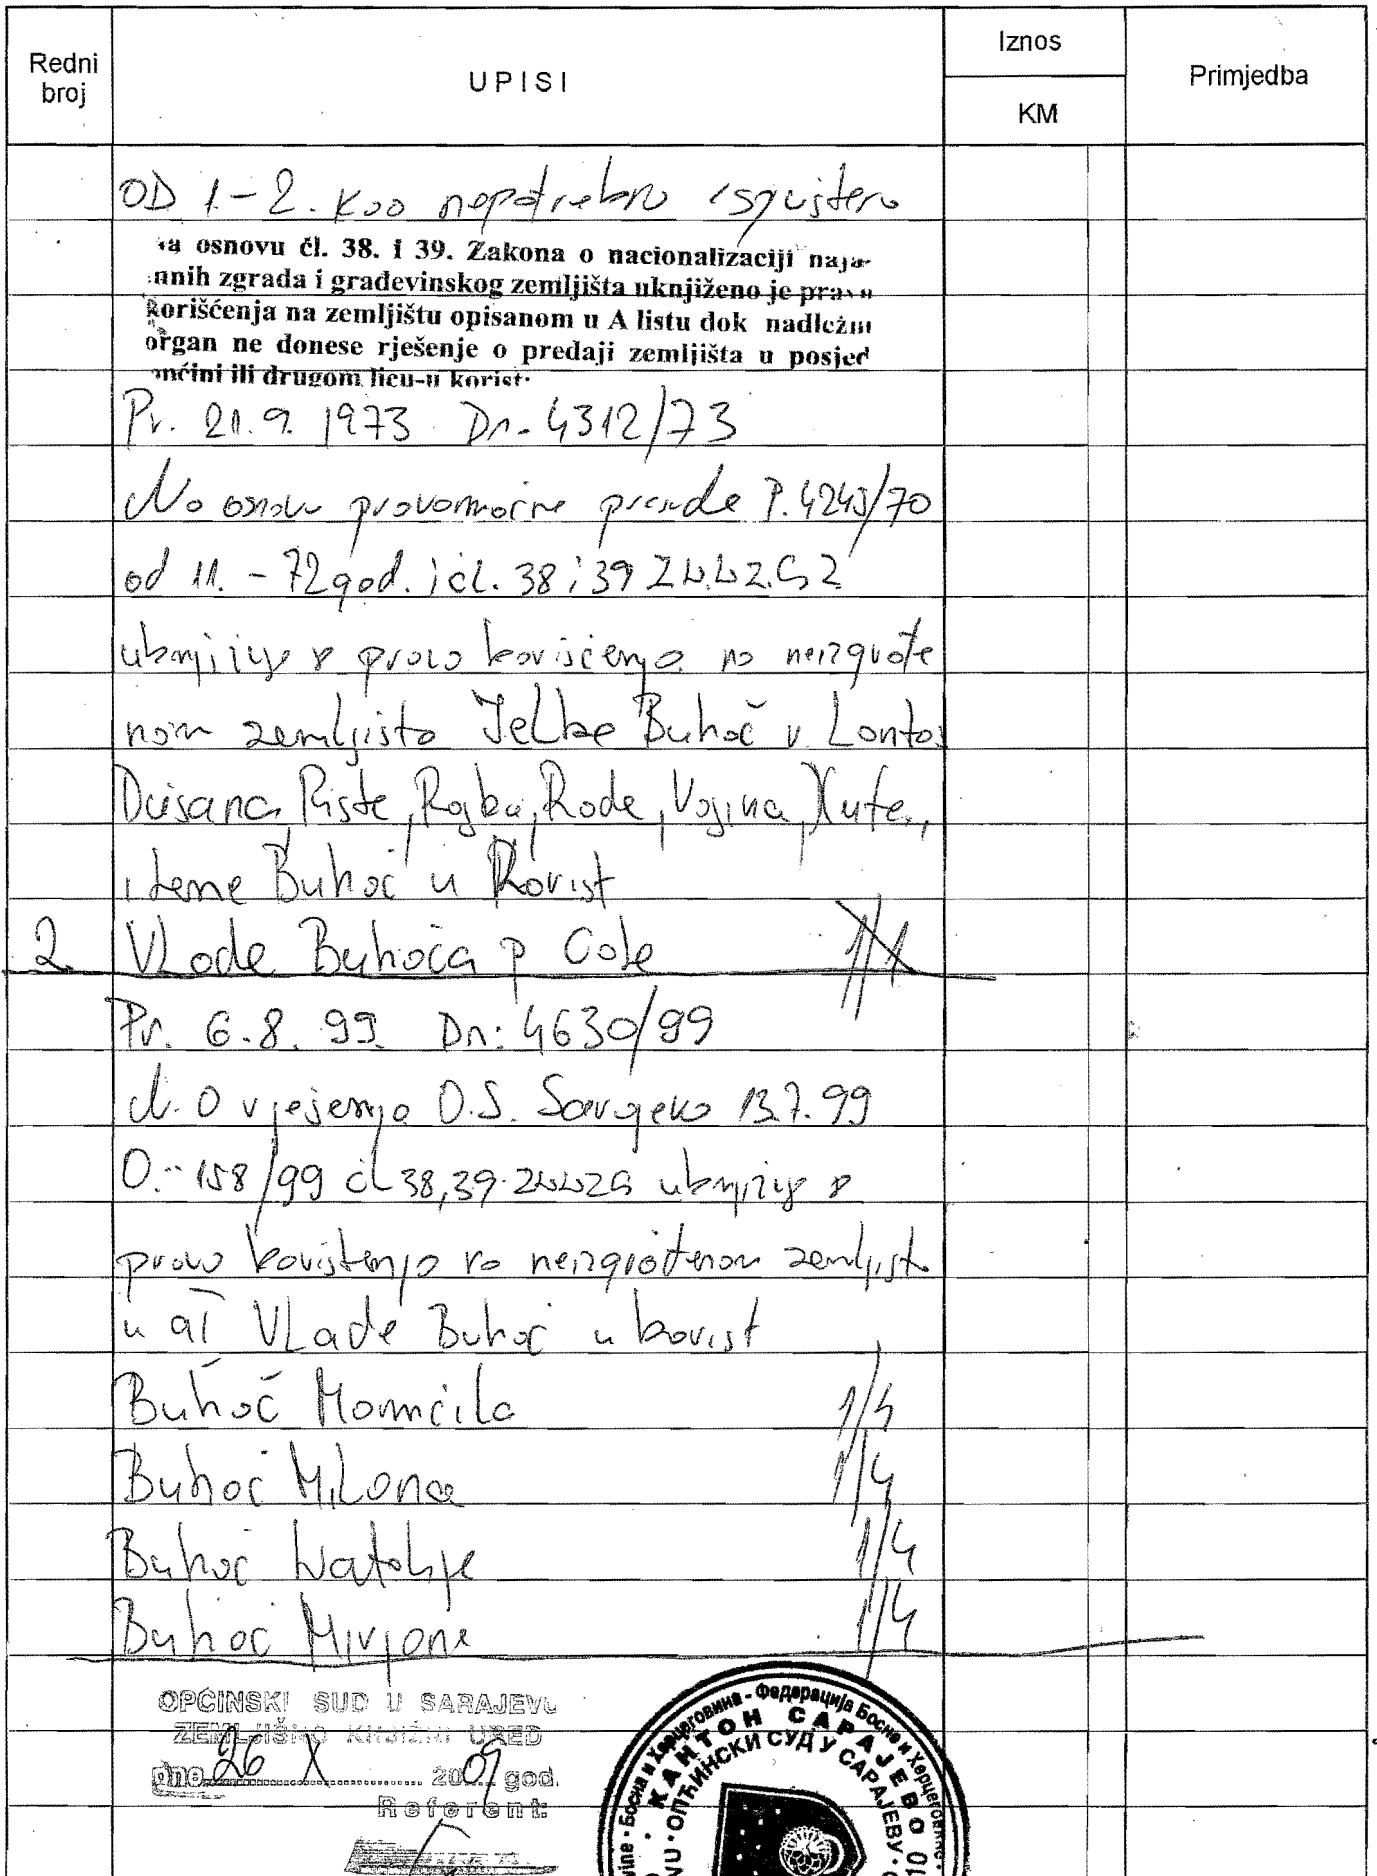 Redni
broj
UPISI
Iznos
KM
Primjedba
OD 1-2. kao nepotrebno ispušteno
osnovu čl. 38. i 39. Zakona o nacionalizaciji naja-
mnih zgrada i građevinskog zemljišta uknjiženo je pravo
korišćenja na zemljištu opisanom u A listu dok nadležni
organ ne donese rješenje o predaji zemljišta u posjed
općini ili drugom licu-u korist:
Pr. 21.9. 1973 Dn. 4312/73
Na osnovu pravomoćne presude P. 4245/70
od 11. - 72 god. i čl. 38 i 39 ZNNZGZ
uknjižuje se pravo korišćenja na neizgrađe
nom zemljištu Jelke Buhač
Dušana, Riste, Rajka, Rade, Vojina,
Buhač u korist
2. Vlade Buhača p 1/1
Pr. 6.8.99. Dn: 4630/99
N. O rješenja O.S. Sarajevo 13.7.99
O.-158/99 čl 38,39 ZNNZG uknjižuje se
pravo korištenja na neizgrađenom zemljištu
u Vlade Buhač u korist
Buhač Momčila 1/4
Buhač Milana 1/4
Buhač Natalije 1/4
Buhač Mirjane 1/4
OPĆINSKI SUD U SARAJEVU
ZEMLJIŠNO KNJIŽNI URED
Dne 26 X 2009 god.
Referent:
Босна и Херцеговина - Федерација Босне и Херцеговине
КАНТОН САРАЈЕВО
ОПЋИНСКИ СУД У САРАЈЕВУ